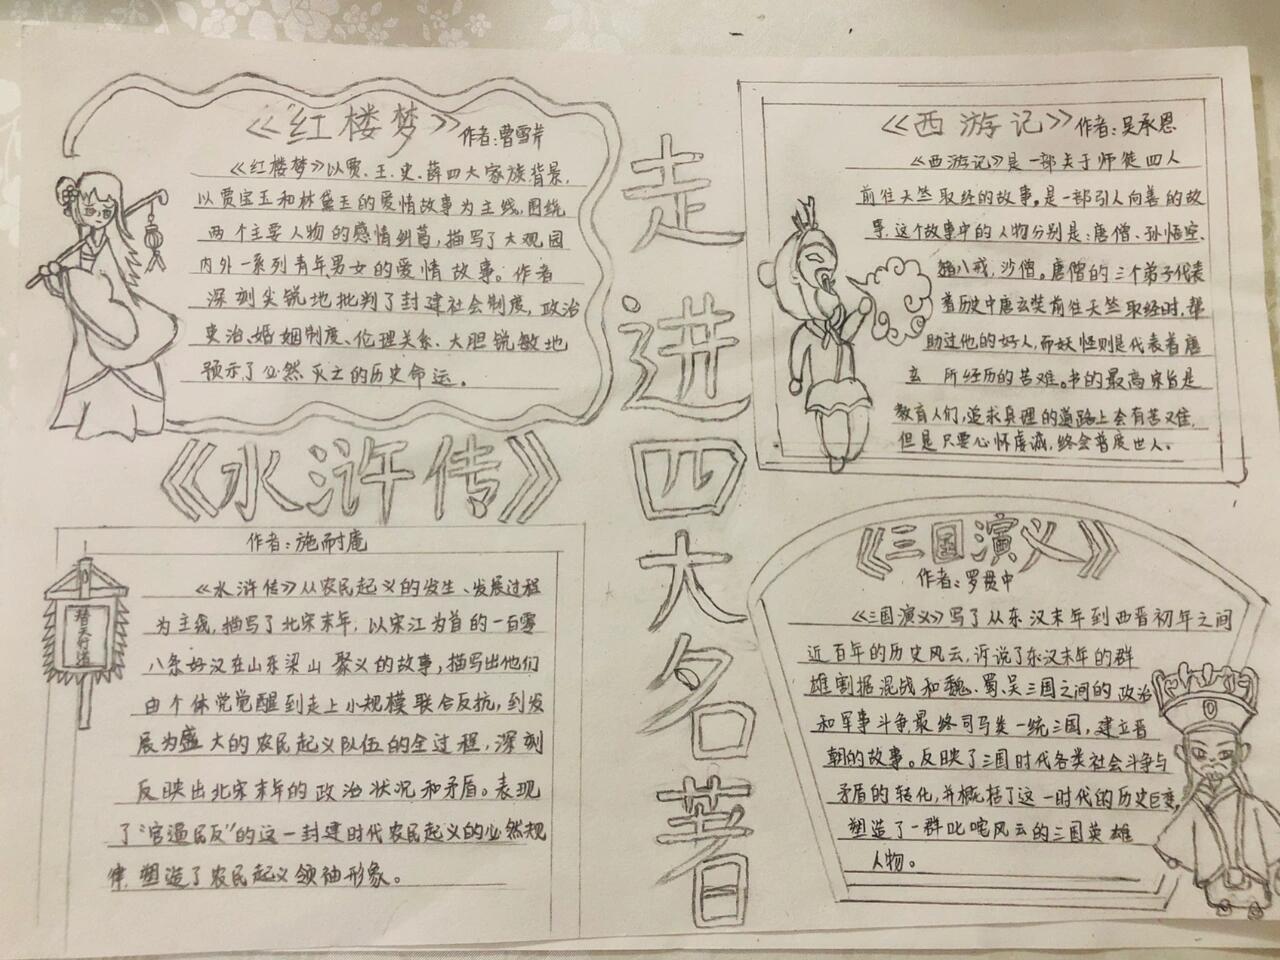 走进四大名著
《红楼梦》
作者:曹雪芹
《红楼梦》以贾、王、史、薛四大家族背景,
以贾宝玉和林黛玉的爱情故事为主线,围绕
两个主要人物的感情纠葛,描写了大观园
内外一系列青年男女的爱情故事。作者
深刻尖锐地批判了封建社会制度,政治
吏治、婚姻制度、伦理关系、大胆锐敏地
预示了必然灭亡的历史命运。
《西游记》
作者:吴承恩
《西游记》是一部关于师徒四人
前往天竺取经的故事。是一部引人向善的故
事,这个故事中的人物分别是:唐僧、孙悟空、
猪八戒,沙僧。唐僧的三个弟子代表
着历史中唐玄奘前往天竺取经时,帮
助过他的好人,而妖怪则是代表着唐
玄 所经历的苦难。书的最高宗旨是
教育人们,追求真理的道路上会有苦难,
但是只要心怀虔诚,终会普度世人。
《水浒传》
作者:施耐庵
替天行道
《水浒传》从农民起义的发生、发展过程
为主线,描写了北宋末年,以宋江为首的一百零
八条好汉在山东梁山聚义的故事,描写出他们
由个体党觉醒到走上小规模联合反抗,到发
展为盛大的农民起义队伍的全过程,深刻
反映出北宋末年的政治状况和矛盾。表现
了“官逼民反”的这一封建时代农民起义的必然规
律,塑造了农民起义领袖形象。
《三国演义》
作者:罗贯中
《三国演义》写了从东汉末年到西晋初年之间
近百年的历史风云,诉说了东汉末年的群
雄割据混战和魏、蜀、吴三国之间的政治
和军事斗争,最终司马类一统三国,建立晋
朝的故事。反映了三国时代各类社会斗争与
矛盾的转化,并概括了这一时代的历史巨变,
塑造了一群叱咤风云的三国英雄
人物。